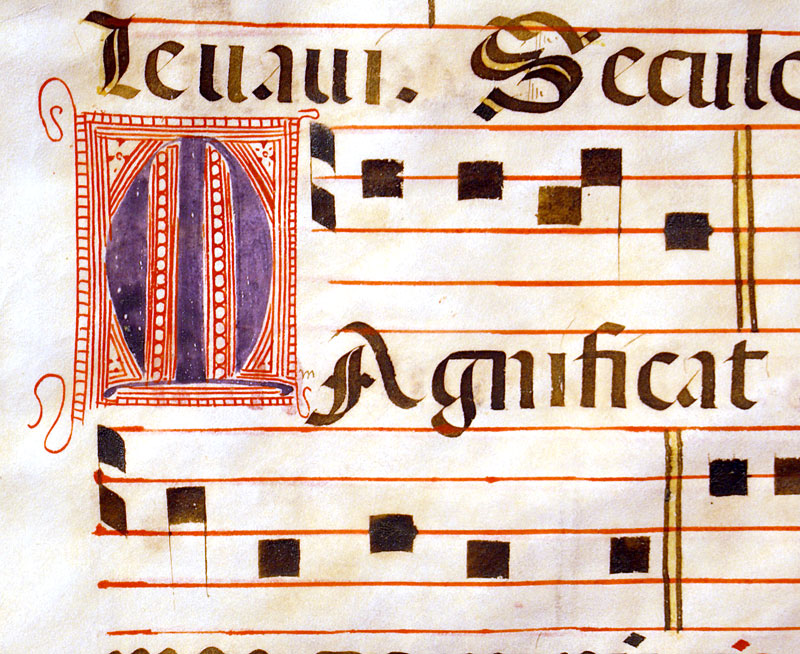 levavi. Seculo
m
MAgnificat